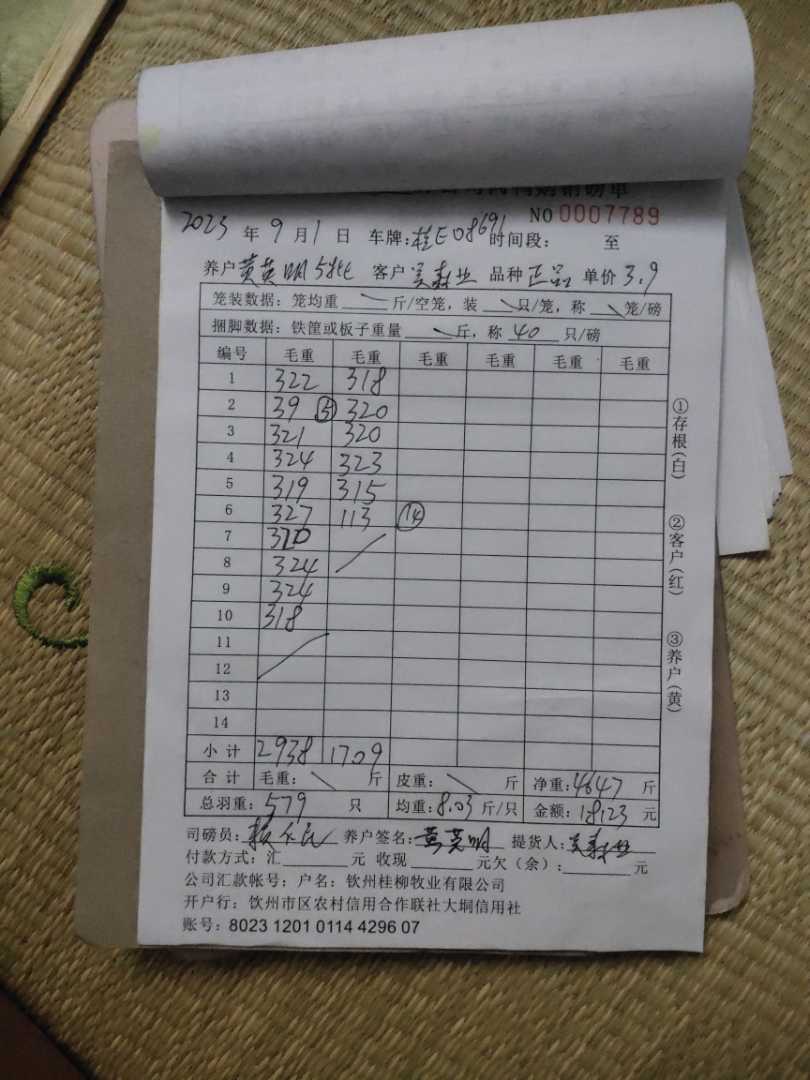 购销磅单
NO 0007789
2023 年 9 月 1 日 车牌: 桂E08691 时间段: 至
养户 黄英明5批 客户 吴森业 品种 正品 单价 3.9
笼装数据: 笼均重 斤/空笼, 装 只/笼, 称 笼/磅
捆脚数据: 铁筐或板子重量 斤, 称 40 只/磅
编号 毛重 毛重 毛重 毛重 毛重 毛重
1 322 318
2 39 ⑤ 320
3 321 320
4 324 323
5 319 315
6 327 113 ⑭
7 320
8 324
9 324
10 318
11
12
13
14
小计 2938 1709
合计 毛重: 斤 皮重: 斤 净重: 4647 斤
总羽重: 579 只 均重: 8.03 斤/只 金额: 18123 元
司磅员: 养户签名: 黄英明 提货人: 吴森业
付款方式: 汇 元 收现 元欠(余): 元
公司汇款帐号; 户名: 钦州桂柳牧业有限公司
开户行: 钦州市区农村信用合作联社大垌信用社
账号: 8023 1201 0114 4296 07
①存根(白)
②客户(红)
③养户(黄)